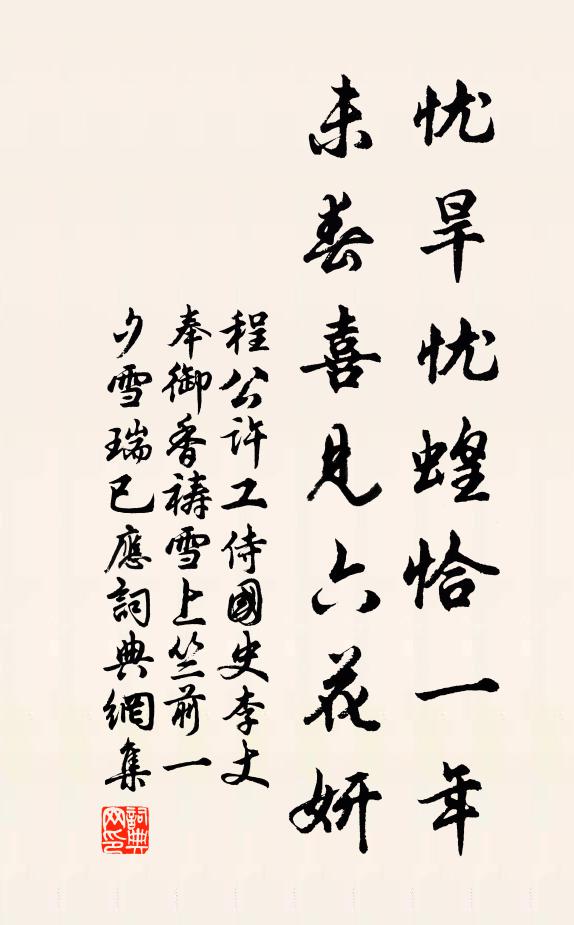 忧旱忧蝗恰一年
未春喜见六花妍
程公许工侍國史李丈
奉御香禱雪上竺前一
夕雪瑞已應詞典網集
詞典
网印